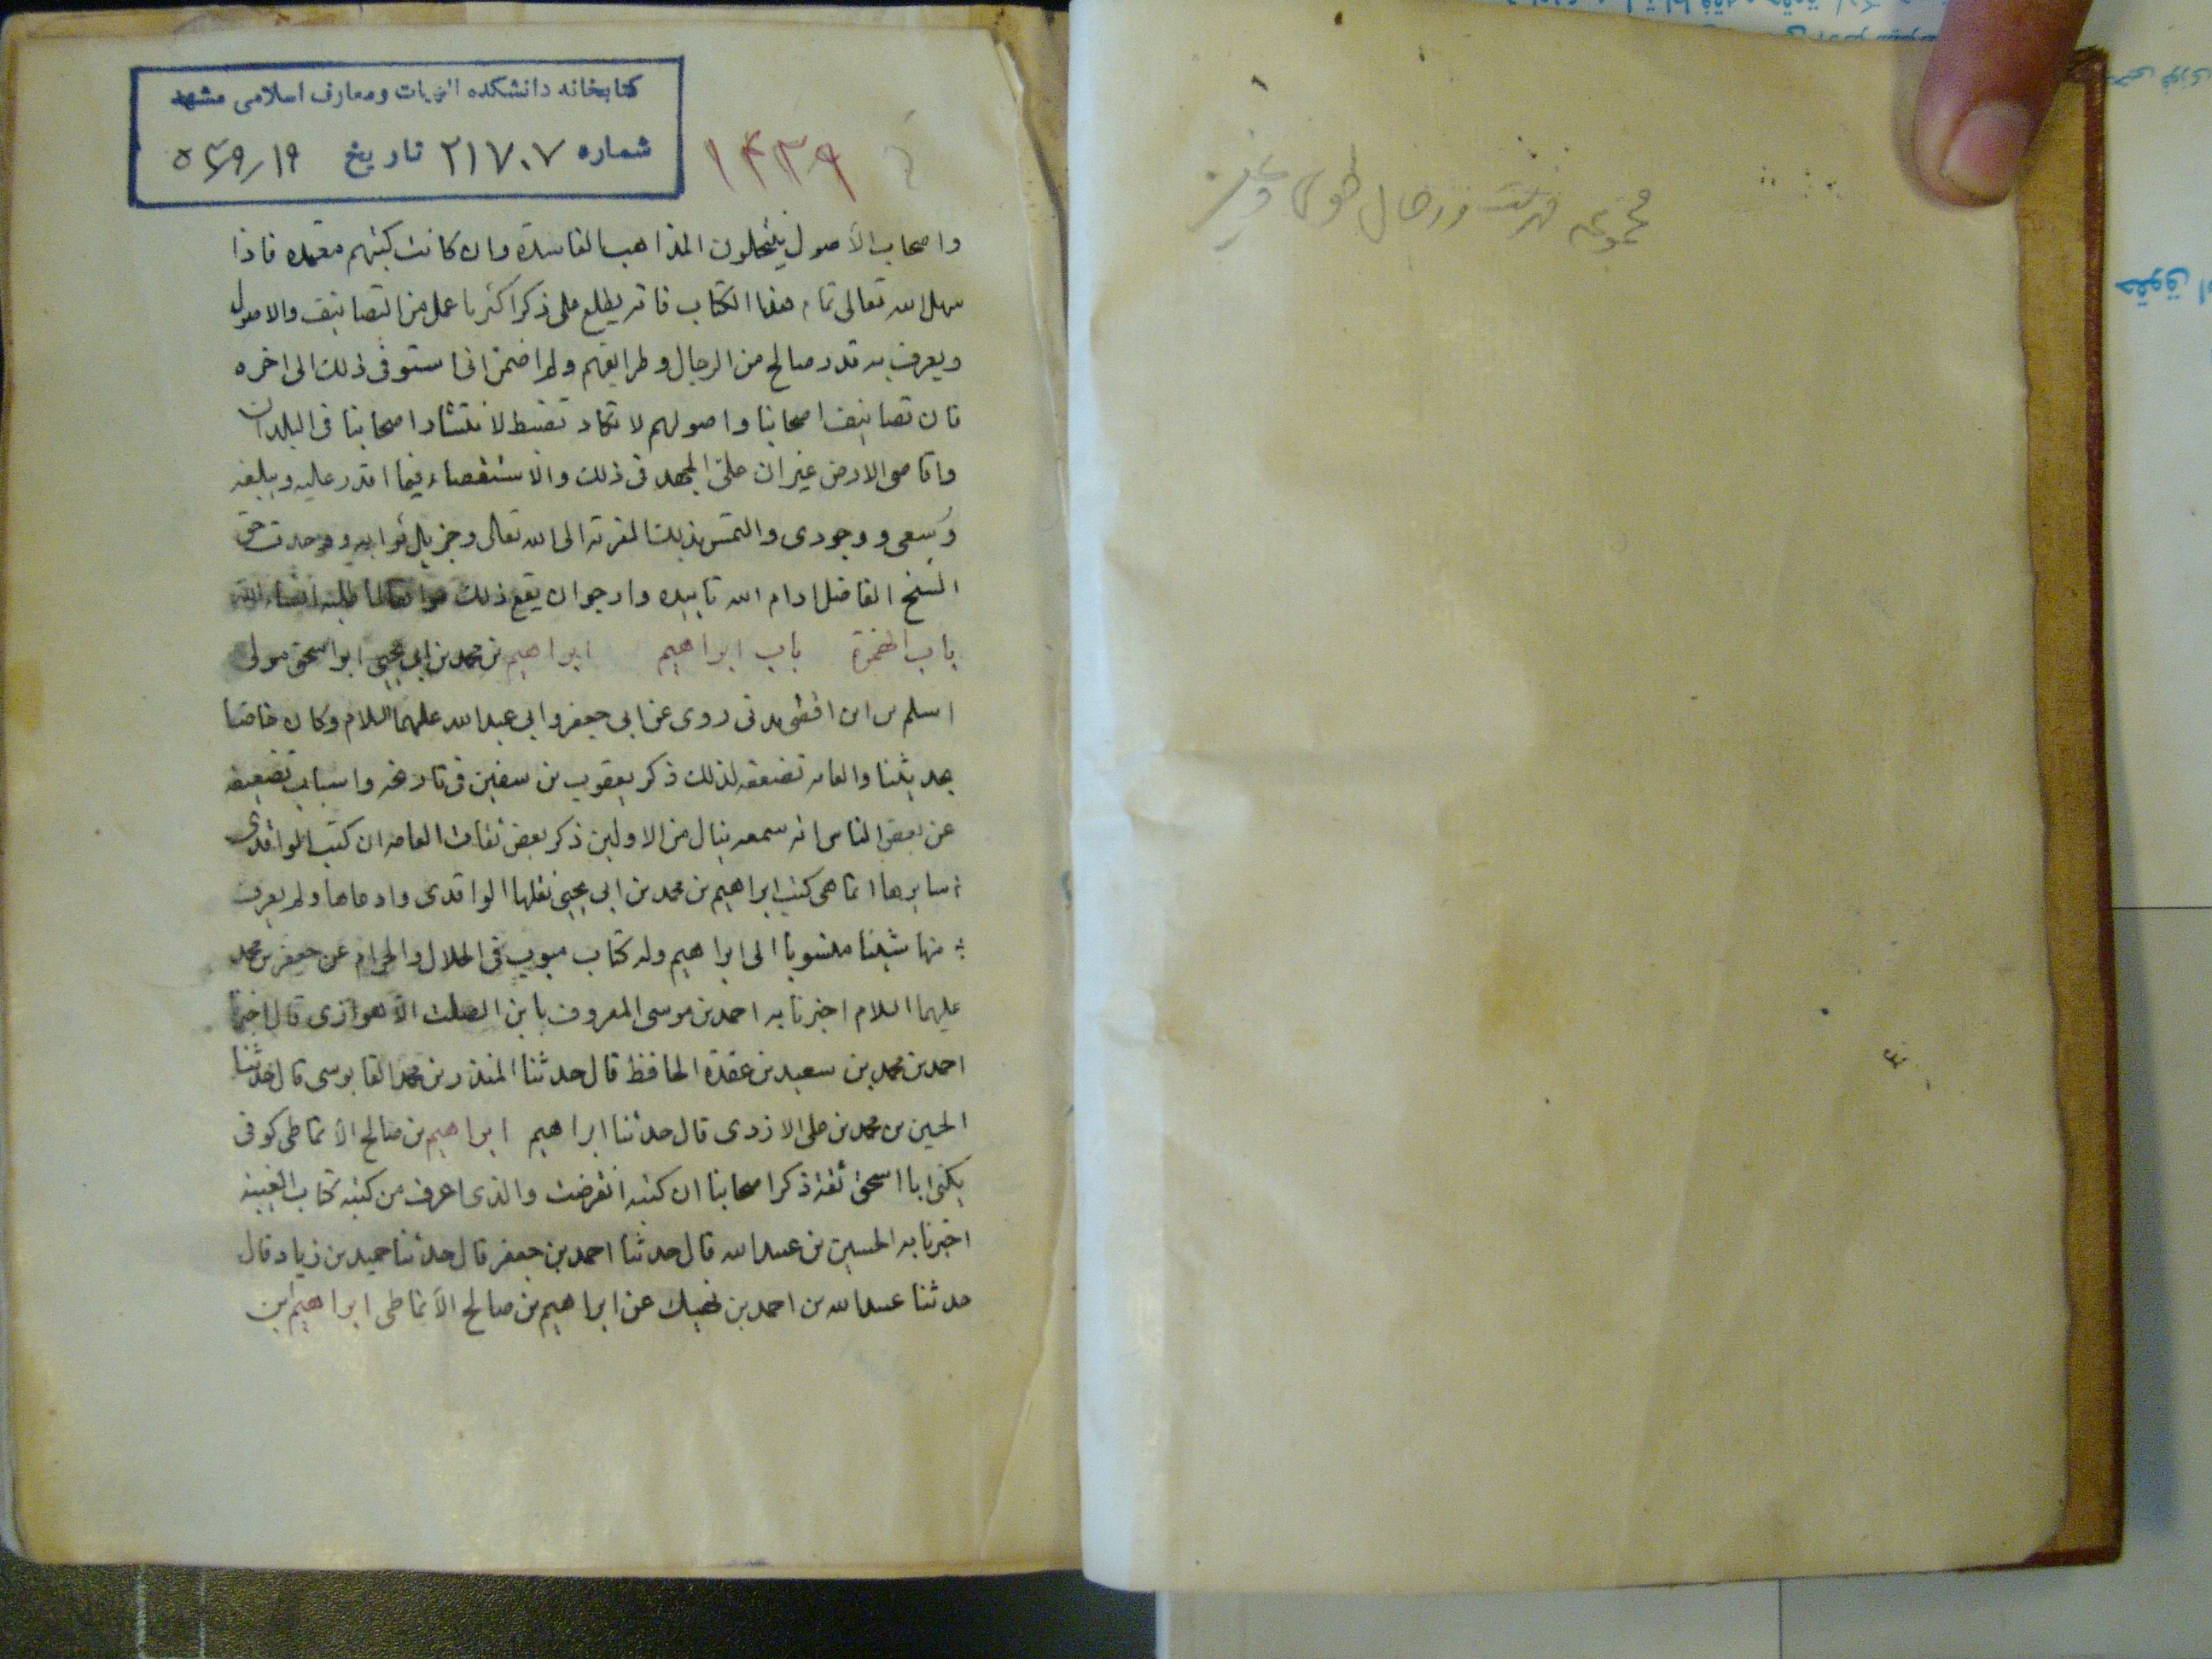 مجموعه فهرست و رجال طوسی و غیره
کتابخانه دانشکده الهیات و معارف اسلامی مشهد
شماره ۲۱۷۰۷ تاریخ
۱۴۳۹
واصحاب الأصول ینتحلون المذاهب الفاسدة وان کانت کتبهم معتمده فاذا
سهل الله تعالی تمام هذا الکتاب فانه یطلع علی ذکر اکثر ما عمل من التصانیف والاصول
ویعرف به قدر صالح من الرجال وطرایقهم ولم اضمن انی استوفی ذلک الی اخره
فان تصانیف اصحابنا واصولهم لا تکاد تضبط لانتشار اصحابنا فی البلدان
واقاصی الارض غیر ان علی الجهد فی ذلک والاستقصاء فیما اقدر علیه ویبلغه
وسعی ووجودی والتمس بذلک القربة الی الله تعالی وجزیل ثوابه ووجدت حق
الشیخ الفاضل ادام الله تاییده وارجو ان یقع ذلک موافقا لما طلبه انشاء الله
باب الهمزة باب ابراهیم ابراهیم بن محمد بن ابی یحیی ابو اسحق مولی
اسلم بن افصی مدنی روی عن ابی جعفر وابی عبد الله علیهما السلام وکان خاصا
بحدیثنا والعامه تضعفه لذلک ذکر یعقوب بن سفین فی تاریخه واسباب تضعیفه
عن بعض الناس انه سمعه ینال من الاولین ذکر بعض ثقات العامه ان کتب الواقدی
سایرها انما هی کتب ابراهیم بن محمد بن ابی یحیی نقلها الواقدی وادعاها ولم یعرف
منها شیئا منسوبا الی ابراهیم وله کتاب مبوب فی الحلال والحرام عن جعفر بن محمد
علیهما السلام اخبرنا به احمد بن موسی المعروف بابن الصلت الأهوازی قال اخبرنا
احمد بن محمد بن سعید بن عقدة الحافظ قال حدثنا المنذر بن محمد القابوسی قال حدثنا
الحسین بن محمد بن علی الازدی قال حدثنا ابراهیم ابراهیم بن صالح الأنماطی کوفی
یکنی ابا اسحق ثقة ذکر اصحابنا ان کتبه انقرضت والذی اعرف من کتبه کتاب الغیبه
اخبرنا به الحسین بن عبید الله قال حدثنا احمد بن جعفر قال حدثنا حمید بن زیاد قال
حدثنا عبید الله بن احمد بن نهیک عن ابراهیم بن صالح الأنماطی ابراهیم بن